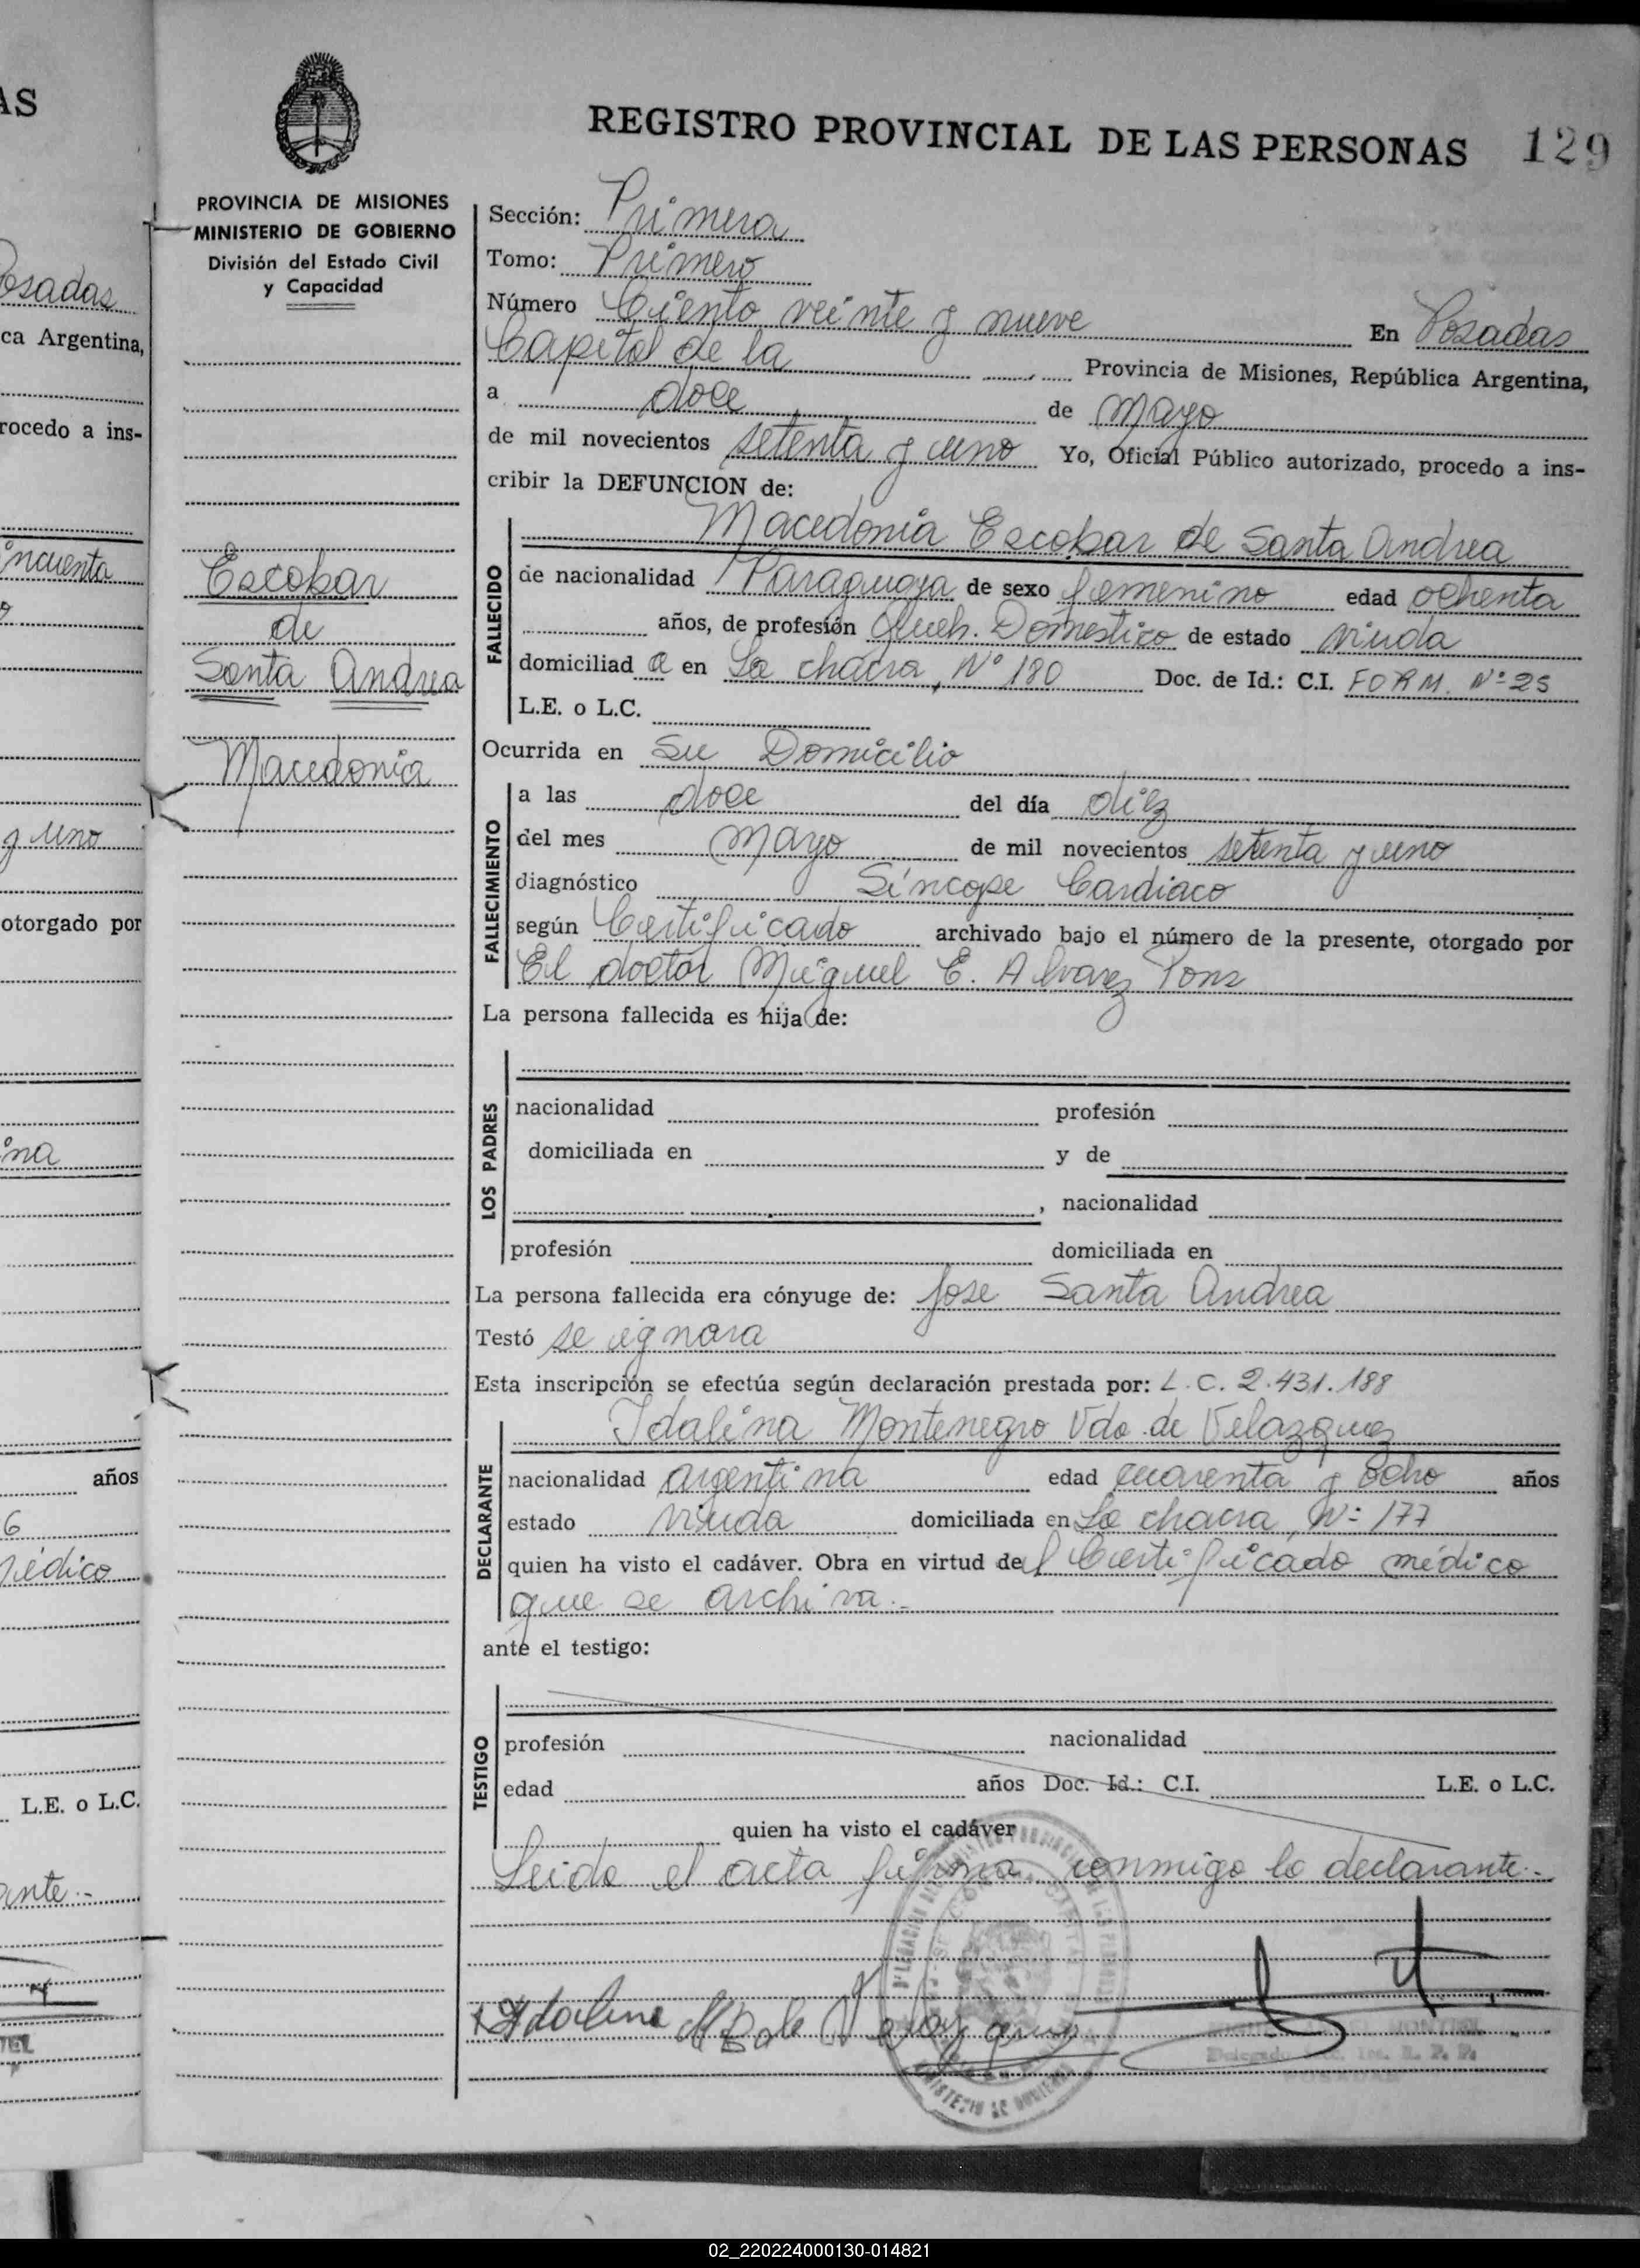 AS
Posadas
ca Argentina,
rocedo a ins-
incuenta
y uno
otorgado por
ina
años
6
médico
L.E. o L.C.
ante.-
REGISTRO PROVINCIAL DE LAS PERSONAS 129
PROVINCIA DE MISIONES
MINISTERIO DE GOBIERNO
División del Estado Civil
y Capacidad
Escobar
de
Santa Andrea
Macedonia
Sección: Primera
Tomo: Primero
Número Ciento veinte y nueve En Posadas
Capital de la Provincia de Misiones, República Argentina,
a doce de mayo
de mil novecientos setenta y uno Yo, Oficial Público autorizado, procedo a ins-
cribir la DEFUNCION de:
FALLECIDO
Macedonia Escobar de Santa Andrea
de nacionalidad Paraguaya de sexo femenino edad ochenta
años, de profesión Queh. Domestico de estado viuda
domiciliad a en La chacra, Nº 180 Doc. de Id.: C.I. FORM. Nº 25
L.E. o L.C.
Ocurrida en Su Domicilio
FALLECIMIENTO
a las doce del día diez
del mes mayo de mil novecientos setenta y uno
diagnóstico Síncope Cardiaco
según Certificado archivado bajo el número de la presente, otorgado por
El doctor Miguel E. Alvarez Pons
La persona fallecida es hija de:
LOS PADRES
nacionalidad profesión
domiciliada en y de
, nacionalidad
profesión domiciliada en
La persona fallecida era cónyuge de: Jose Santa Andrea
Testó se ignora
Esta inscripción se efectúa según declaración prestada por: L.C. 2.431.188
DECLARANTE
Idalina Montenegro Vda de Velazquez
nacionalidad argentina edad cuarenta y ocho años
estado viuda domiciliada en La chacra, Nº 177
quien ha visto el cadáver. Obra en virtud del Certificado médico
que se archiva.-
ante el testigo:
TESTIGO
profesión nacionalidad
edad años Doc. Id.: C.I. L.E. o L.C.
quien ha visto el cadáver
Leida el acta firma conmigo la declarante.-
Idalina M de Velazquez
MINISTERIO DE GOBIERNO
02_220224000130-014821